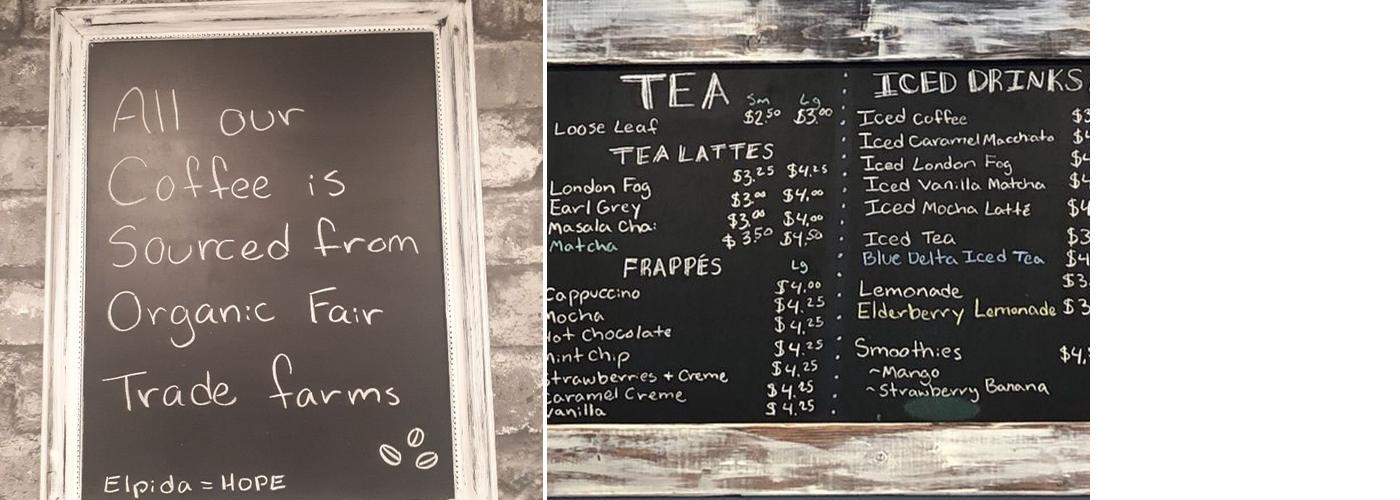 All our
Coffee is
Sourced from
Organic Fair
Trade farms
Elpida = HOPE
TEA
Sm Lg
Loose Leaf $2.50 $3.00
TEA LATTES
London Fog $3.25 $4.25
Earl Grey $3.00 $4.00
Masala Chai $3.00 $4.00
Matcha $3.50 $4.50
FRAPPÉS Lg
Cappuccino $4.00
Mocha $4.25
Hot Chocolate $4.25
Mint Chip $4.25
Strawberries + Creme $4.25
Caramel Creme $4.25
Vanilla $4.25
ICED DRINKS
Iced Coffee $3
Iced Caramel Macchiato $4
Iced London Fog $4
Iced Vanilla Matcha $4
Iced Mocha Latté $4
Iced Tea $3
Blue Delta Iced Tea $4
Lemonade $3.
Elderberry Lemonade $3
Smoothies $4.
~Mango
~Strawberry Banana